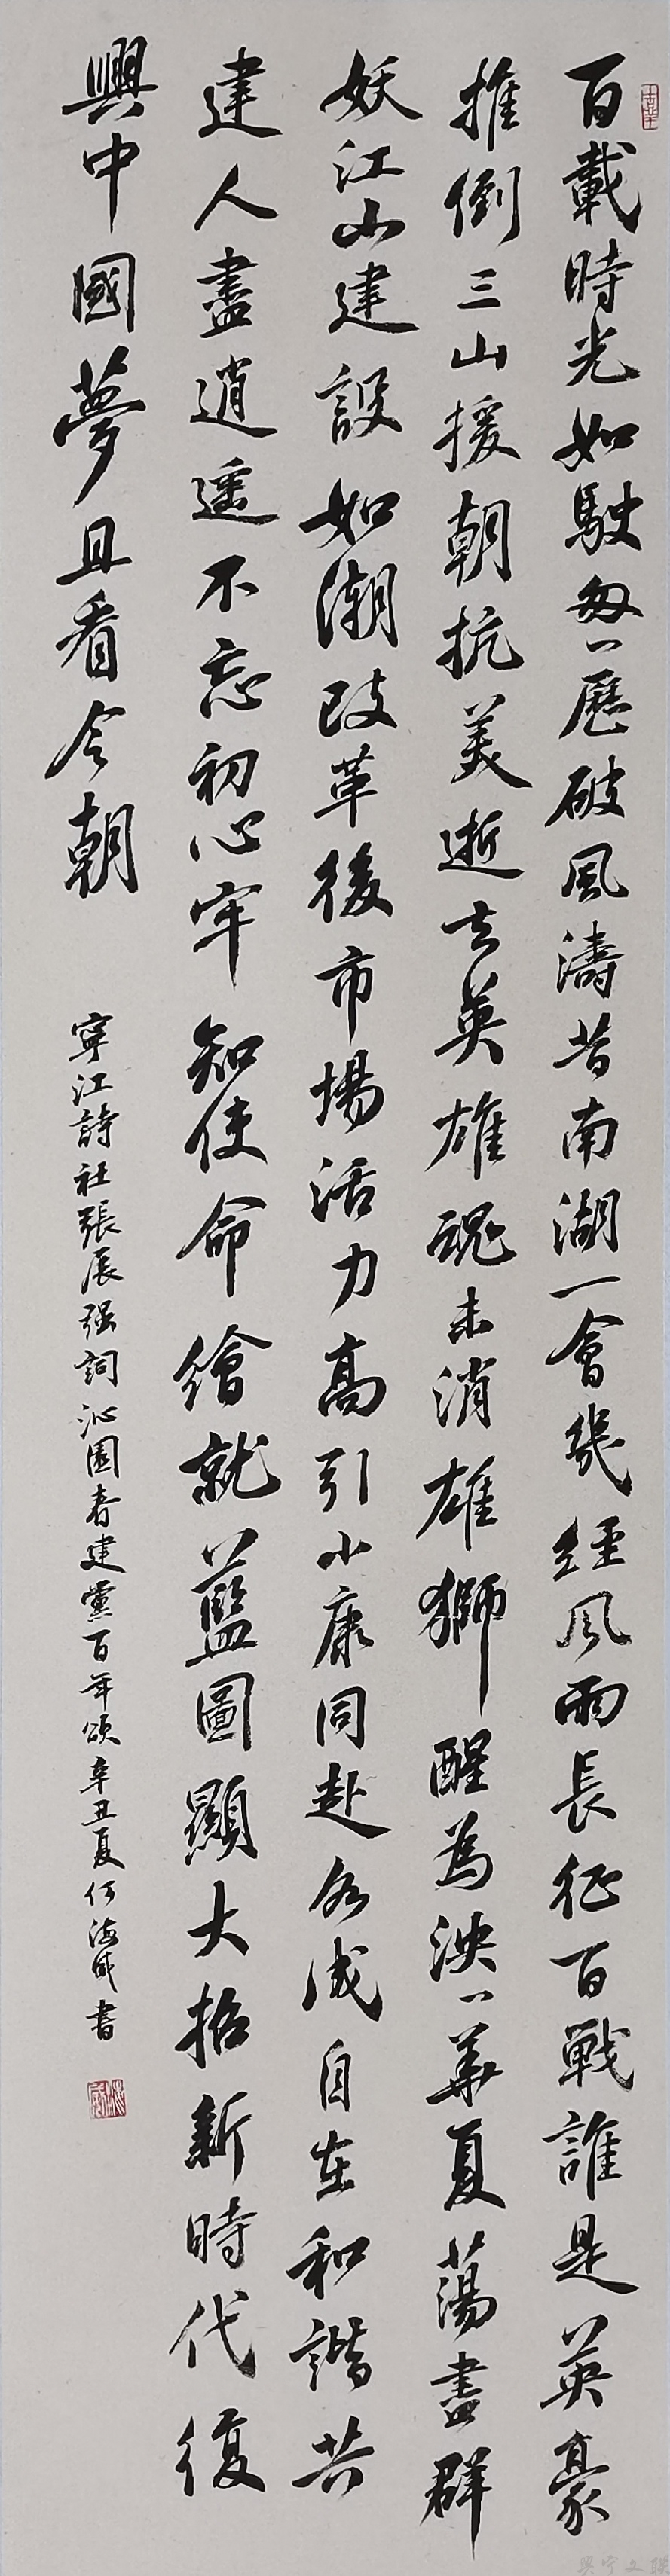 百載時光如駛匆〻歷破風濤昔南湖一會幾經風雨長征百戰誰是英豪
推倒三山援朝抗美逝去英雄魂未消雄獅醒為泱〻華夏蕩盡群
妖江山建設如潮改革後市場活力高引小康同赴各成自在和諧共
建人盡逍遥不忘初心牢知使命繪就藍圖顯大招新時代復
興中國夢且看今朝
寧江詩社張展强詞沁園春建黨百年頌辛丑夏何海成書